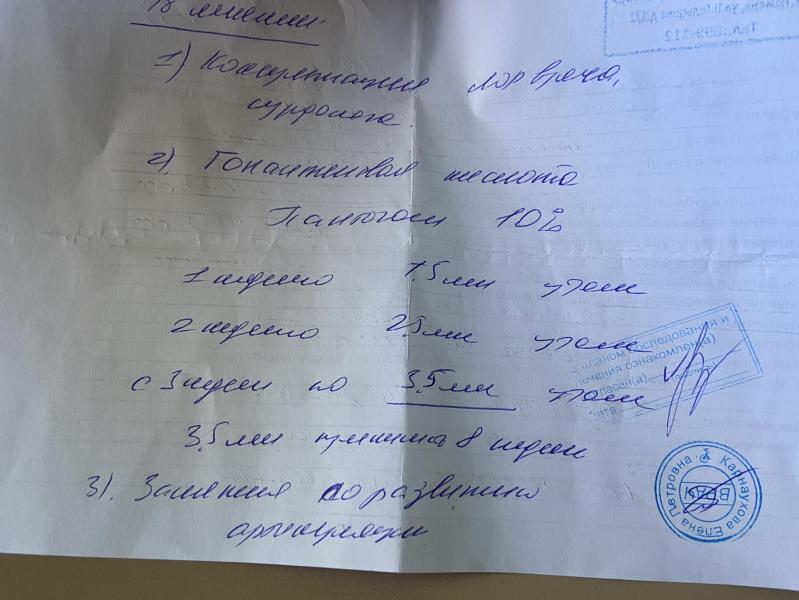 1) Консультация лор врача,
сурдолога.
2) Гопантеновая кислота
Пантогам 10%
1 неделю 1.5 мл утром
2 неделю 2.5 мл утром
с 3 недели по 3.5 мл утром
3.5 мл принимать 8 недель
3). Занятия по развитию
артикуляции
Тел.: 599-112
планом обследования и
лечения ознакомлен(а)
согласен(а)
Карнаухова Елена Петровна
ВРАЧ